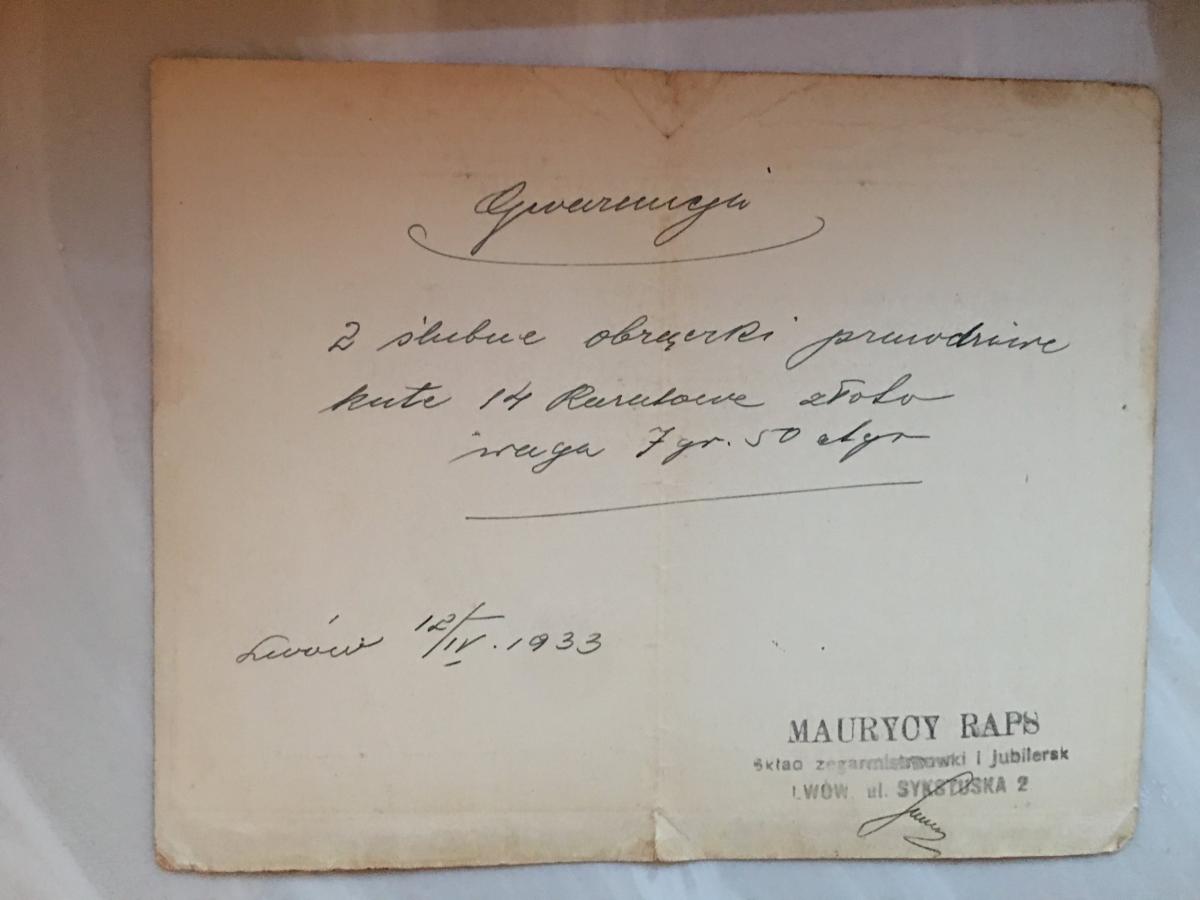 Gwarancja
2 ślubne obrączki prawdziwe
kute 14 karatowe złoto
waga 7 gr. 50 ctgr
Lwów 12/IV. 1933
MAURYCY RAPS
Skład zegarmistrzowski i jubilersk
LWÓW ul. SYKSTUSKA 2